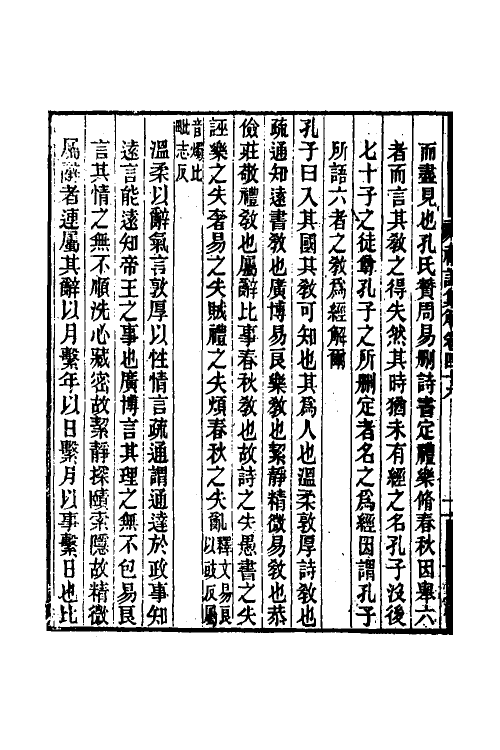 而盡見也孔氏贊周易刪詩書定禮樂脩春秋因舉六
者而言其敎之得失然其時猶未有經之名孔子沒後
七十子之徒尊孔子之所刪定者名之爲經因謂孔子
所語六者之敎爲經解爾
孔子曰入其國其敎可知也其爲人也溫柔敦厚詩敎也
疏通知遠書敎也廣博易良樂敎也絜靜精微易敎也恭
儉莊敬禮敎也屬辭比事春秋敎也故詩之失愚書之失
誣樂之失奢易之失賊禮之失煩春秋之失亂釋文易良
以豉反屬
音燭比
毗志反
溫柔以辭氣言敦厚以性情言疏通謂通達於政事知
遠言能遠知帝王之事也廣博言其理之無不包易良
言其情之無不順洗心藏密故絜靜探賾索隱故精微
屬辭者連屬其辭以月繫年以日繫月以事繫日也比